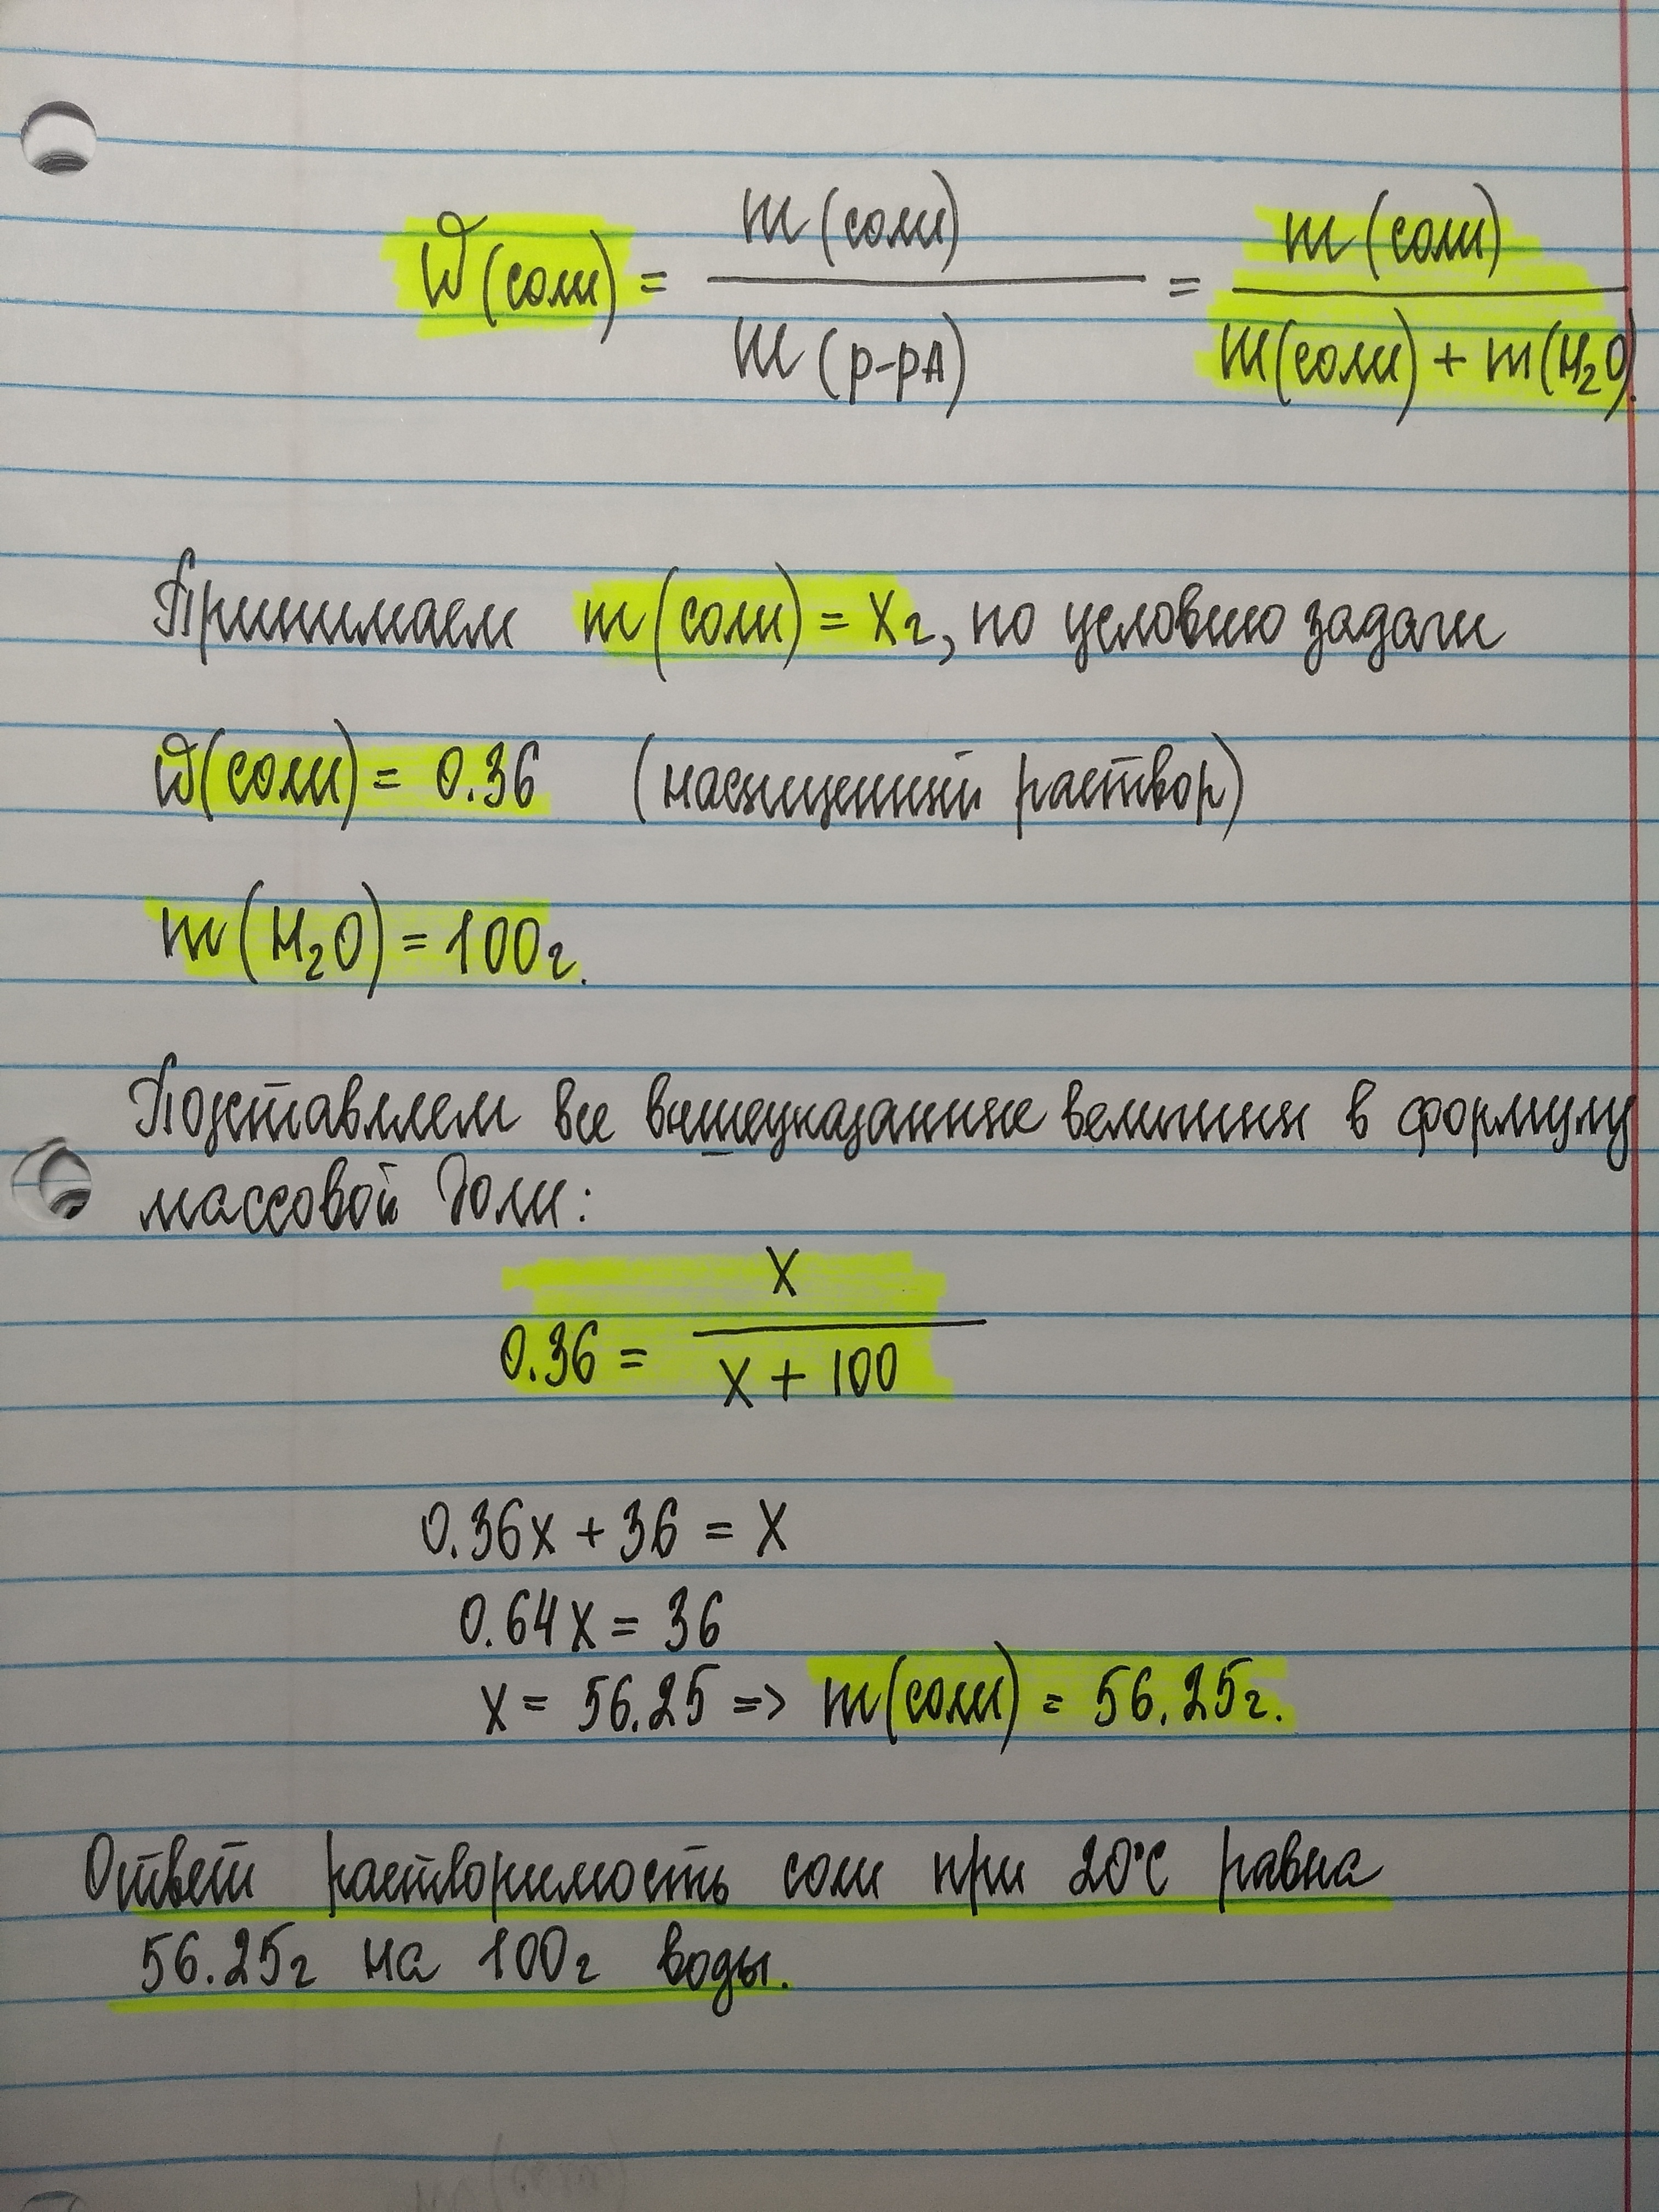 W(соли) = m(соли) / m(р-ра) = m(соли) / m(соли) + m(H₂O).
Принимаем m(соли) = Xг, по условию задачи
W(соли) = 0.36 (насыщенный раствор)
m(H₂O) = 100г.
Подставляем все вышеуказанные величины в формулу
массовой доли:
0.36 = X / X + 100
0.36x + 36 = X
0.64X = 36
X = 56.25 => m(соли) = 56.25г.
Ответ растворимость соли при 20°C равна
56.25г на 100г воды.